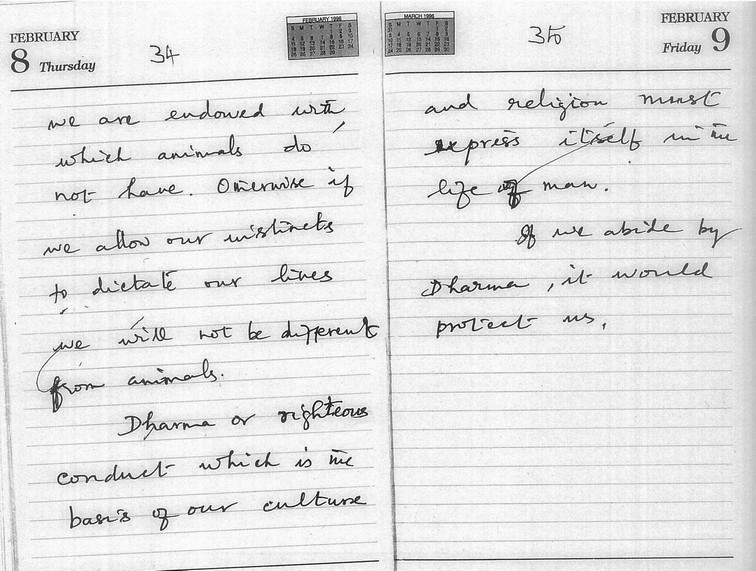 FEBRUARY
8 Thursday
34
FEBRUARY 1996
we are endowed with
which animals do
not have. Otherwise if
we allow our instincts
to dictate our lives
we will not be different
from animals.
Dharma or righteous
conduct which is the
basis of our culture
MARCH 1996
35
FEBRUARY
Friday 9
and religion must
express itself in the
life of man.
If we abide by
Dharma, it would
protect us.